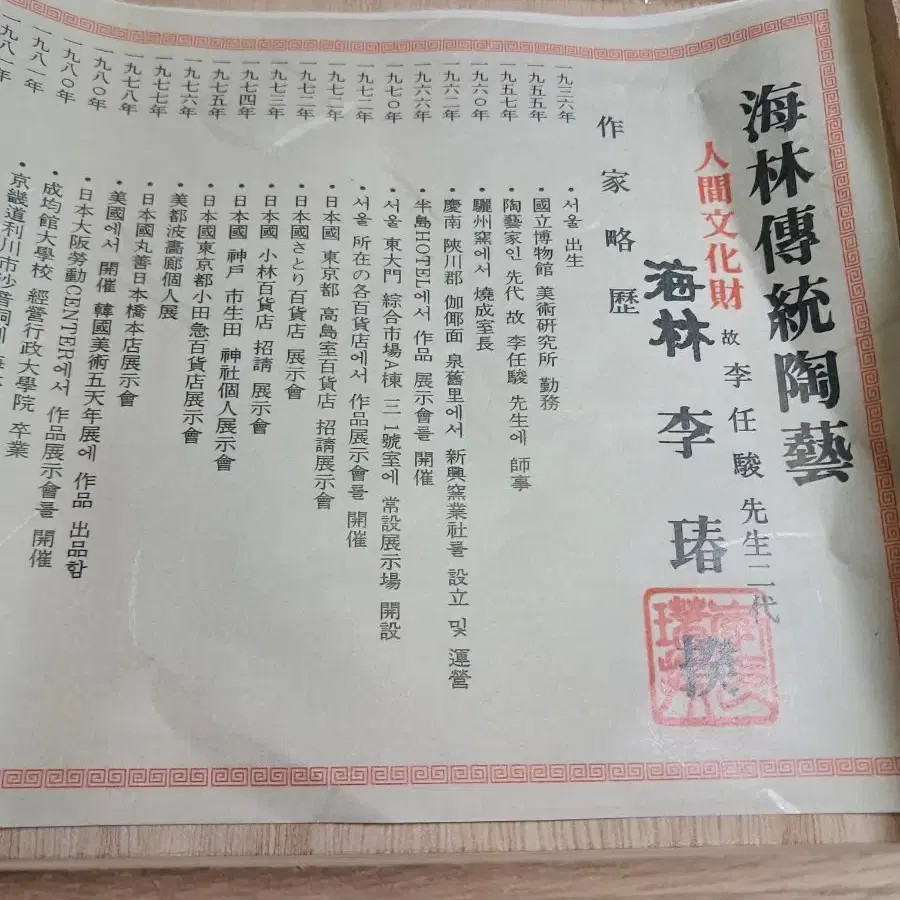 海林傳統陶藝
人間文化財 故 李任駿 先生二代
海林 李 瑃
作家略歷
一九三六年 • 서울 出生
一九五五年 • 國立博物館 美術硏究所 勤務
一九五七年 • 陶藝家인 先代 故 李任駿 先生에 師事
一九六〇年 • 驪州窯에서 燒成室長
一九六二年 • 慶南 陜川郡 伽倻面 泉舊里에서 新興窯業社를 設立 및 運營
一九六六年 • 半島HOTEL에서 作品 展示會를 開催
一九七〇年 • 서울 東大門 綜合市場A棟 三 1號室에 常設展示場 開設
一九七二年 • 서울 所在の各百貨店에서 作品展示會를 開催
一九七二年 • 日本國 東京都 高島室百貨店 招請展示會
一九七二年 • 日本國さとり百貨店 展示會
一九七三年 • 日本國 小林百貨店 招請 展示會
一九七四年 • 日本國 神戶 市生田 神社個人展示會
一九七五年 • 日本國東京都小田急百貨店展示會
一九七六年 • 美都波畵廊個人展
一九七七年 • 日本國丸善日本橋本店展示會
一九七八年 • 美國에서 開催 韓國美術五天年展에 作品 出品함
一九八〇年 • 日本大阪勞動CENTER에서 作品展示會를 開催
一九八〇年 • 成均館大學校 經營行政大學院 卒業
一九八一年 • 京畿道利川市沙音洞에
一九八一年